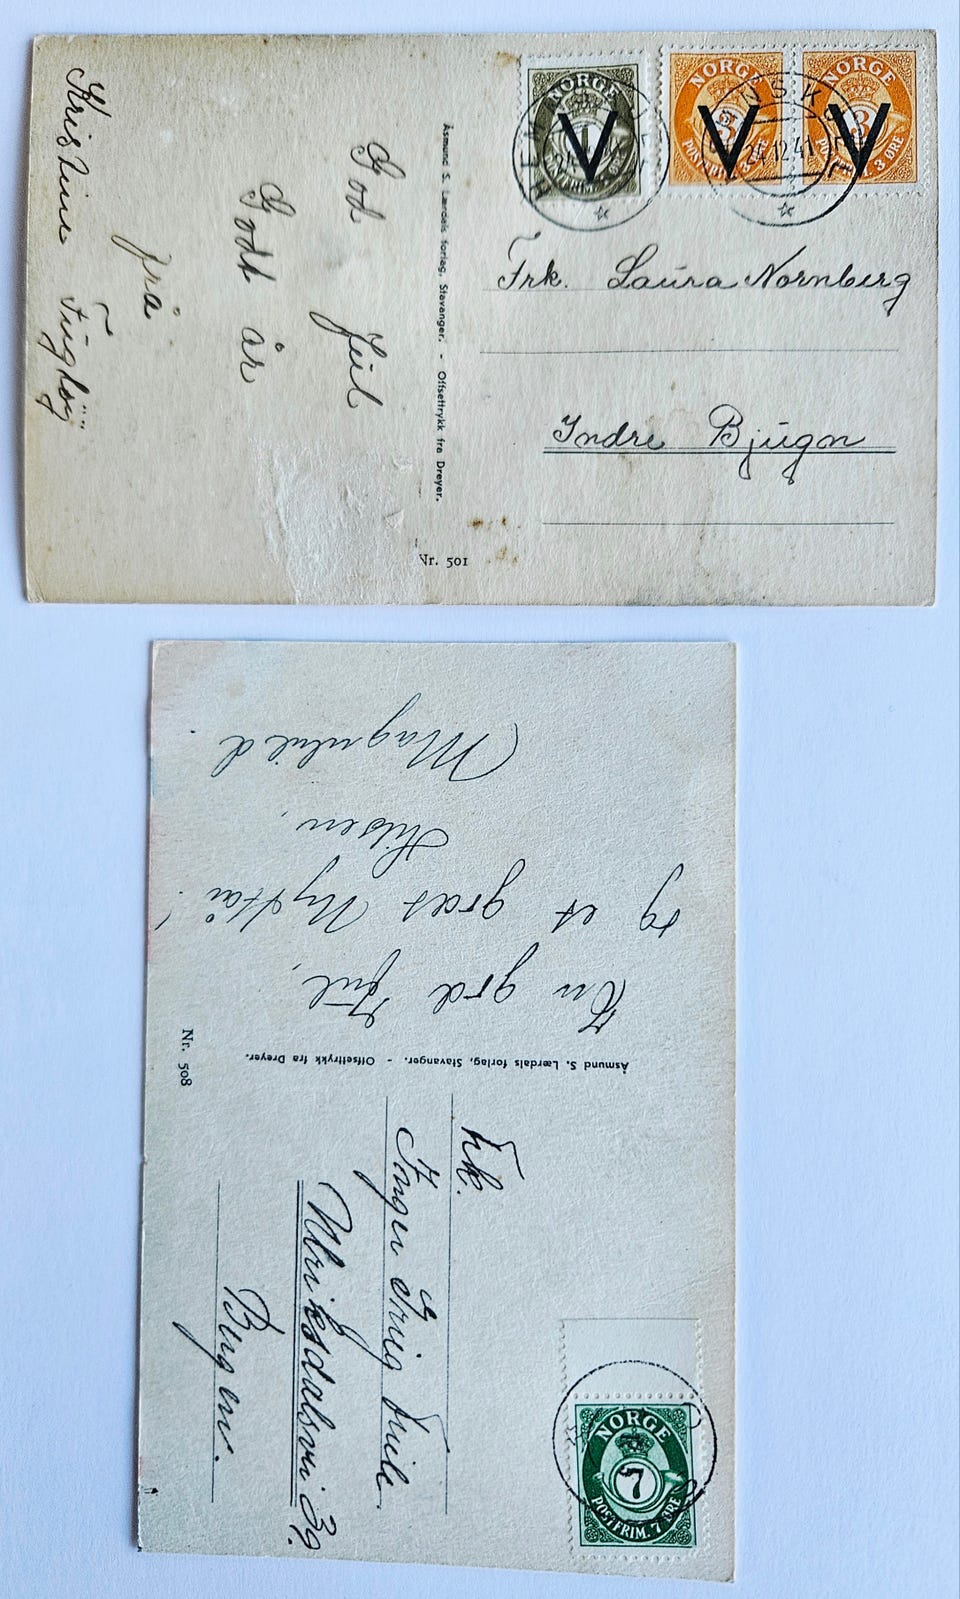 NORGE
V
1
NORGE
V
3
POSTFRIM. 3 ØRE
NORGE
V
3
POSTFRIM. 3 ØRE
24.12.41
Frk. Laura Nornberg
Indre Bjugn
Åsmund S. Lærdals forlag, Stavanger. - Offsettrykk fra Dreyer.
Nr. 501
God Jul
Godt år
frå
Kristine
En god Jul,
og et godt Nyttår!
Hilsen,
Magnhild
Åsmund S. Lærdals forlag, Stavanger. - Offsettrykk fra Dreyer.
Nr. 508
Frk.
Inger
Bergen.
NORGE
7
POSTFRIM. 7 ØRE